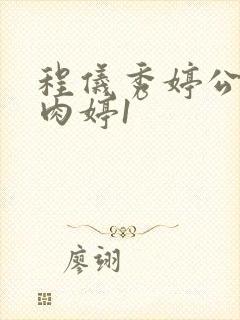 程儀秀婷公
肉婷1
廖翊